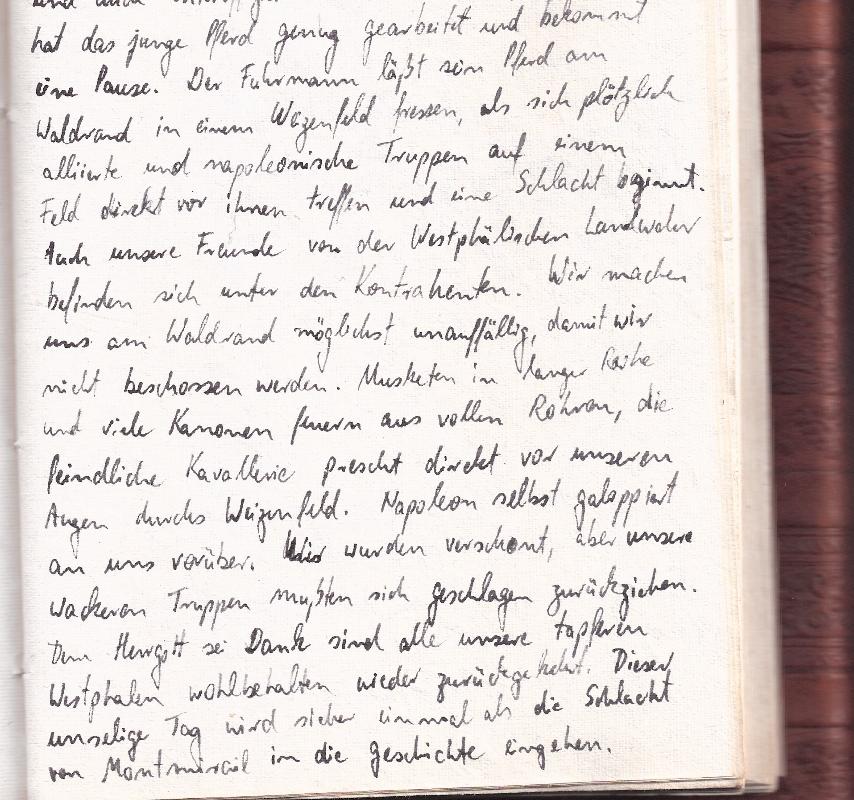 hat das junge Pferd genug gearbeitet und bekommt
eine Pause. Der Fuhrmann läßt sein Pferd am
Waldrand in einem Weizenfeld fressen, als sich plötzlich
alliierte und napoleonische Truppen auf einem
Feld direkt vor ihnen treffen und eine Schlacht beginnt.
Auch unsere Freunde von der Westphälischen Landwehr
befinden sich unter den Kontrahenten. Wir machen
uns am Waldrand möglichst unauffällig, damit wir
nicht beschossen werden. Musketen in langer Reihe
und viele Kanonen feuern aus vollen Rohren, die
feindliche Kavallerie prescht direkt vor unseren
Augen durchs Weizenfeld. Napoleon selbst galoppiert
an uns vorüber. Wir wurden verschont, aber unsere
wackeren Truppen mußten sich geschlagen zurückziehen.
Dem Herrgott sei Dank sind alle unsere tapferen
Westphalen wohlbehalten wieder zurückgekehrt. Dieser
unselige Tag wird sicher einmal als die Schlacht
von Montmirail in die Geschichte eingehen.